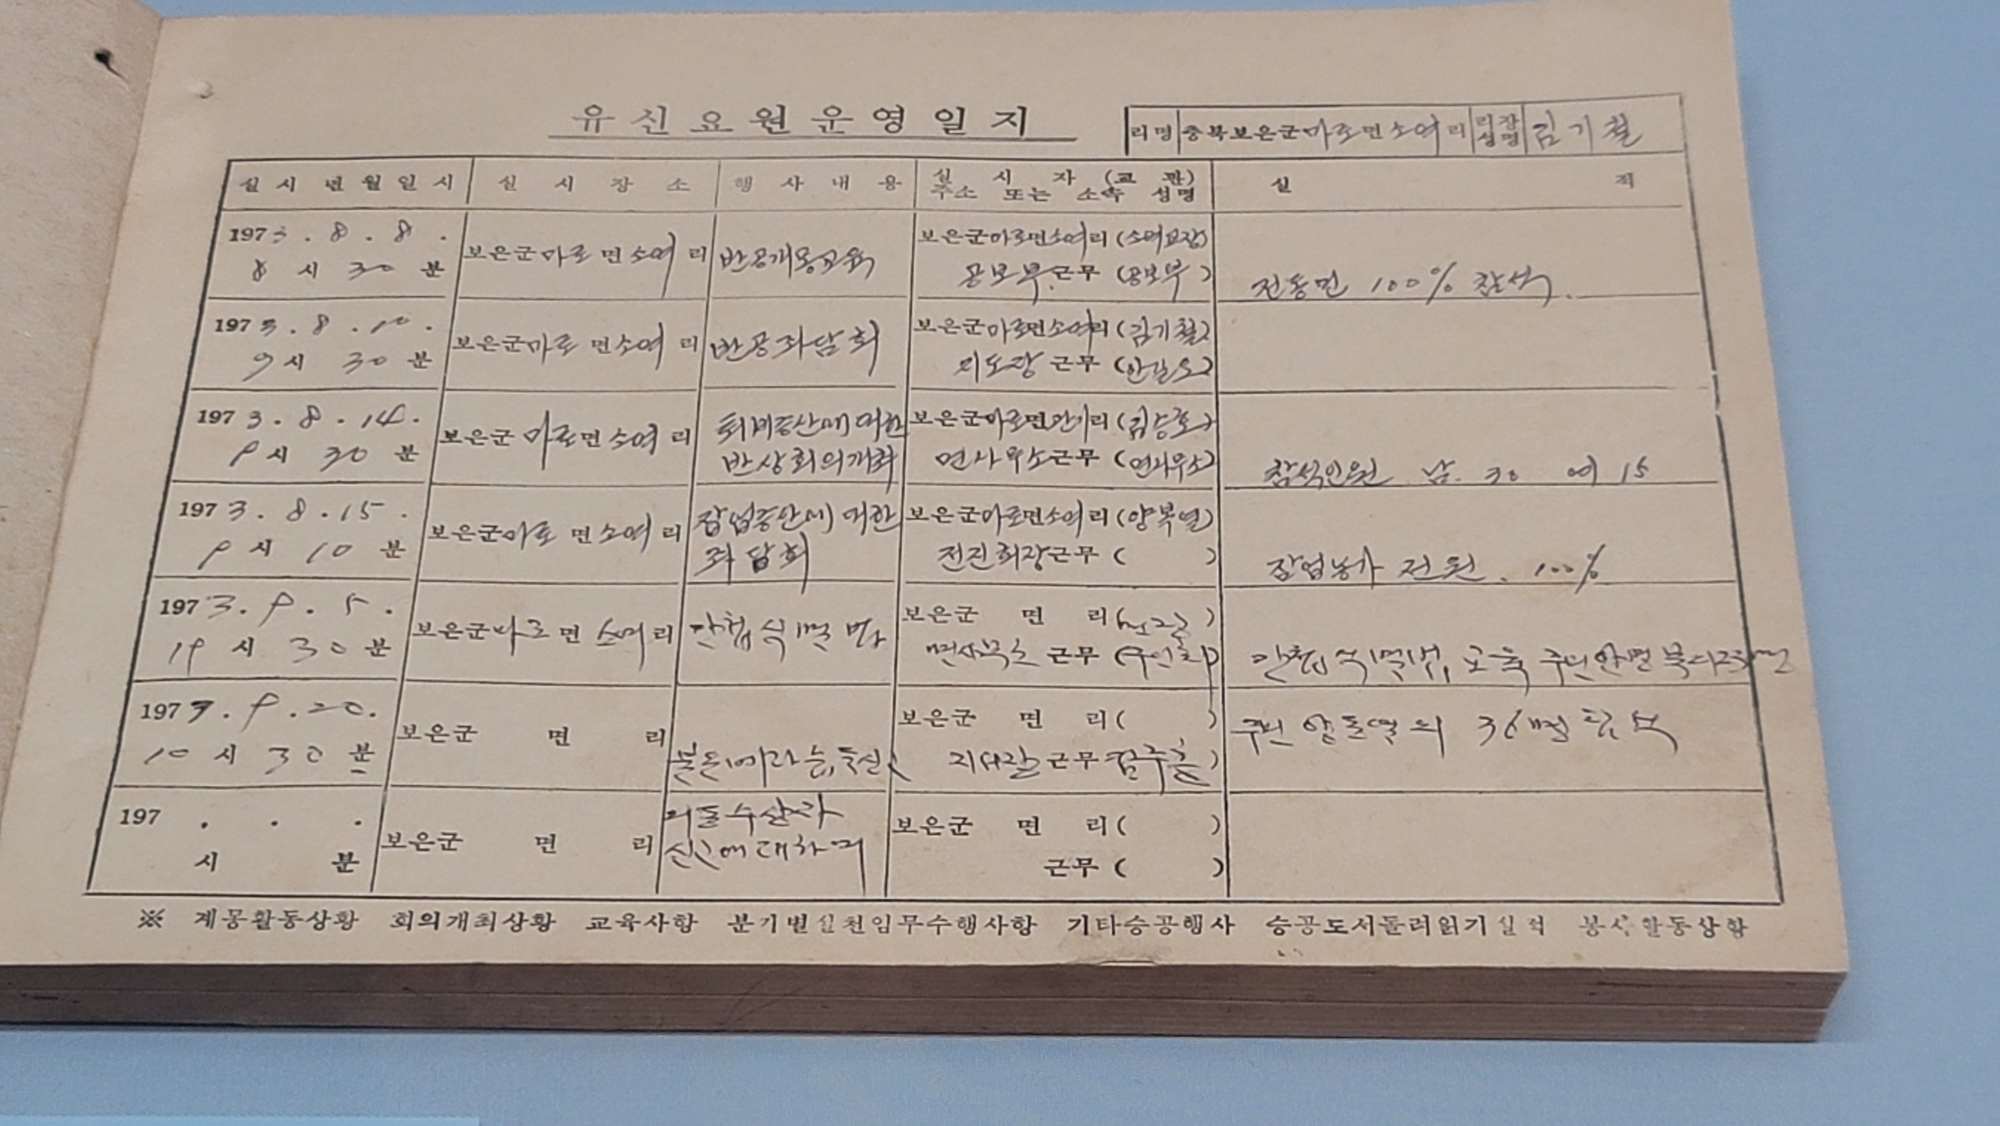 유신요원운영일지
리명 충북보은군마로면소여리 리장성명 김기철
실시년월일시 실시장소 행사내용 실시자(교관) 주소 또는 소속 성명 실적
1973. 8. 8. 보은군마로면소여리 반공계몽교육 보은군마로면소여리(소여교장)
8시 30분 공보부근무(공보부) 전동민 100% 참석.
1973. 8. 10. 보은군마로면소여리 반공좌담회 보은군마로면소여리(김기철)
9시 30분 지도장근무
1973. 8. 14. 보은군마로면소여리 퇴비증산에 대한 보은군마로면관기리(김승호)
9시 30분 반상회의개최 면사무소근무(면사무소) 참석인원 남. 30 여 15
1973. 8. 15. 보은군마로면소여리 잠업증산에 대한 보은군마로면소여리(양복열)
9시 10분 좌담회 전진회장근무( ) 잠업농가 전원. 100%
1973. 9. 5. 보은군마로면소여리 간첩식별법 보은군 면 리
19시 30분 면사무소근무 간첩식별법 교육 주민
197 . 9. 20. 보은군 면 리 보은군 면 리( )
10시 30분 근무 주민 36명 참석
197 . . . 보은군 면 리 보은군 면 리( )
시 분 근무( )
※ 계몽활동상황 회의개최상황 교육사항 분기별실천임무수행사항 기타승공행사 승공도서돌려읽기실적 봉사활동상황